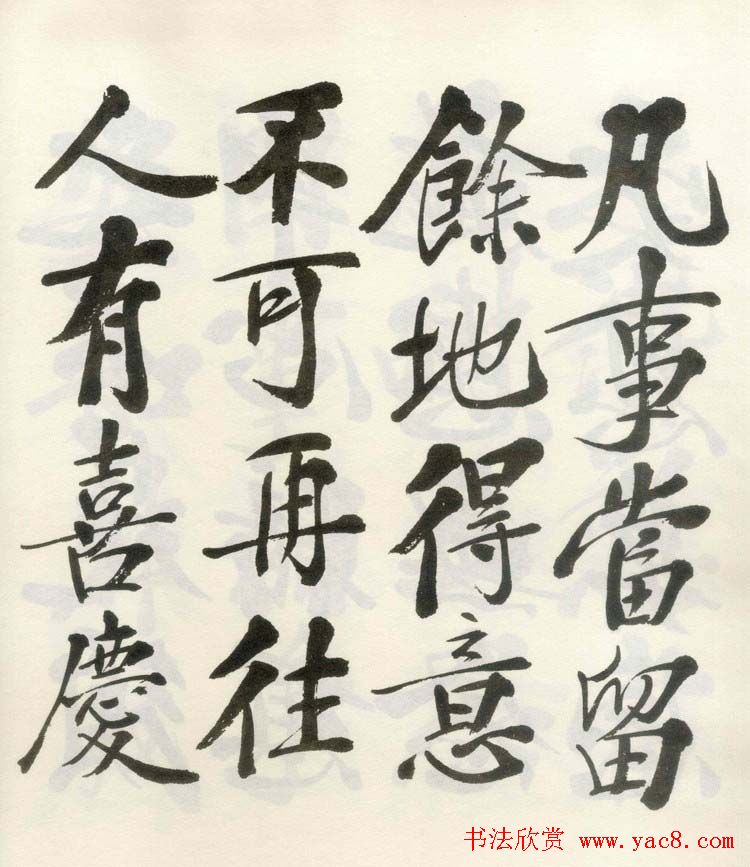 凡事當留
餘地得意
不可再往
人有喜慶
书法欣赏 www.yac8.com